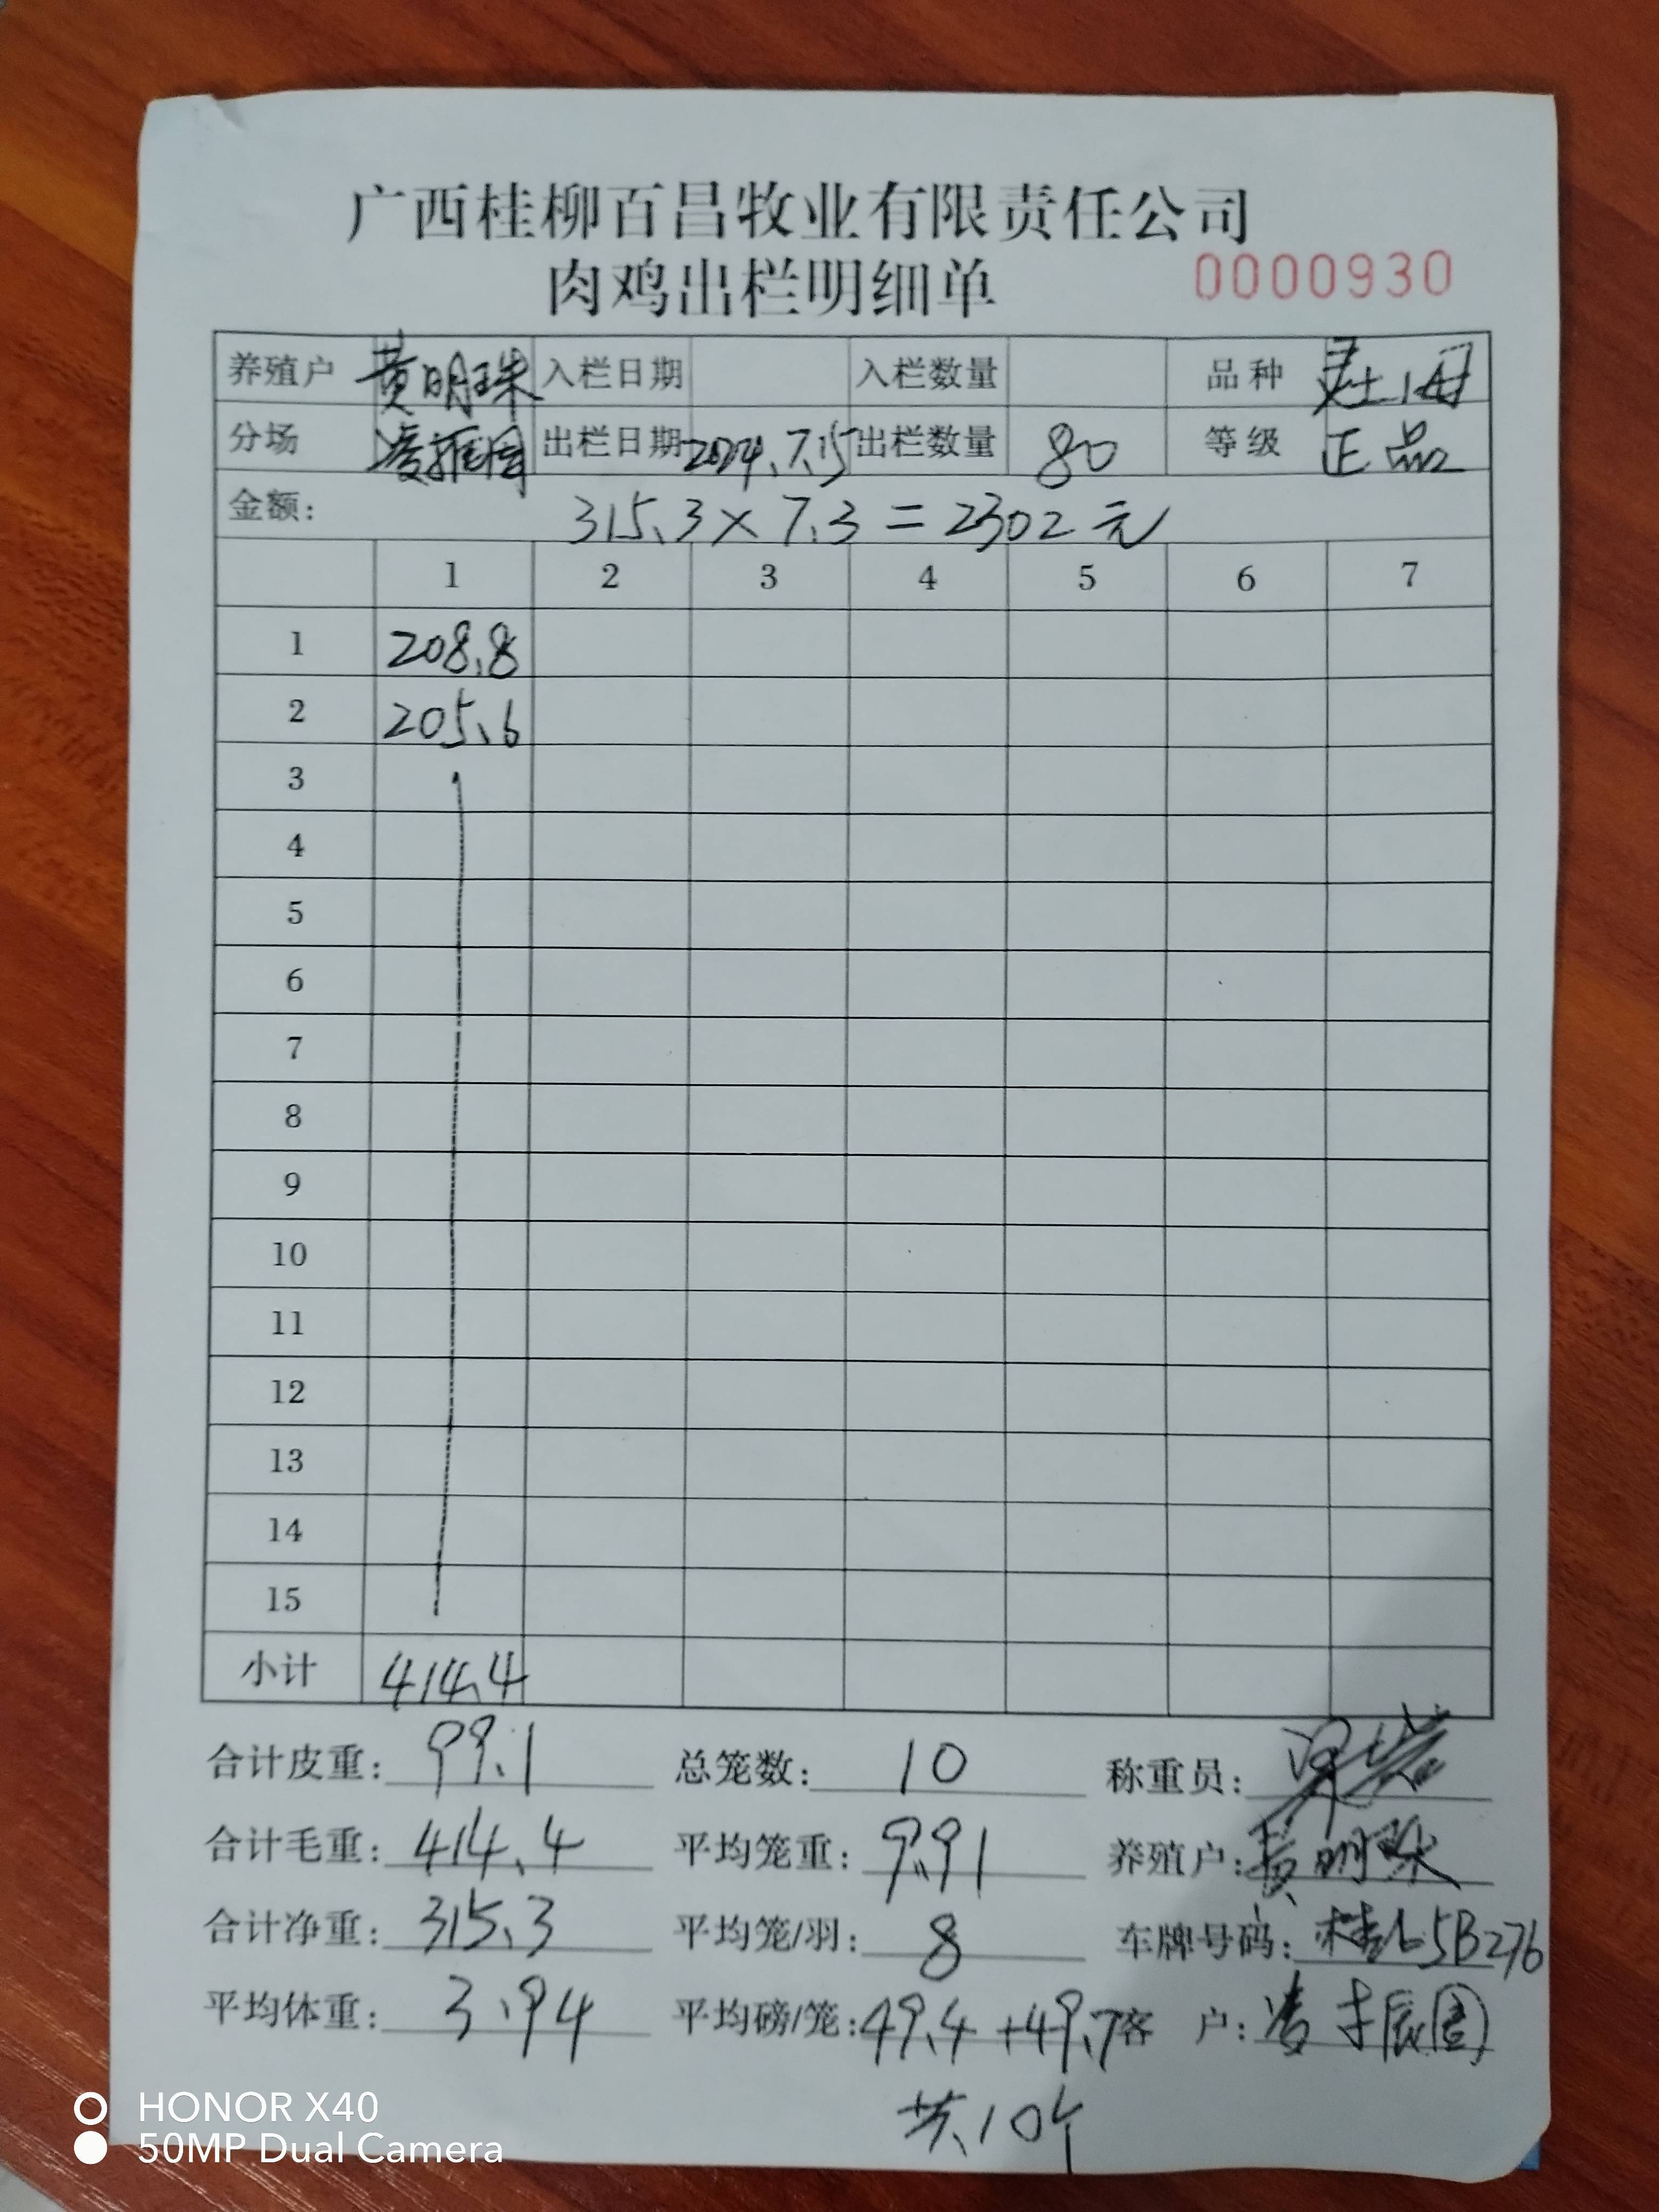 广西桂柳百昌牧业有限责任公司
肉鸡出栏明细单 0000930
养殖户 黄明珠 入栏日期 入栏数量 品种
分场 出栏日期 2024.7.15 出栏数量 80 等级 正品
金额: 315.3×7.3=2302元
1 2 3 4 5 6 7
1 208.8
2 205.6
3
4
5
6
7
8
9
10
11
12
13
14
15
小计 414.4
合计皮重: 99.1 总笼数: 10 称重员:
合计毛重: 414.4 平均笼重: 9.91 养殖户: 黄明珠
合计净重: 315.3 平均笼/羽: 8 车牌号码: 5B276
平均体重: 3.94 平均磅/笼: 49.4+49.7 客 户:
共10个
HONOR X40
50MP Dual Camera